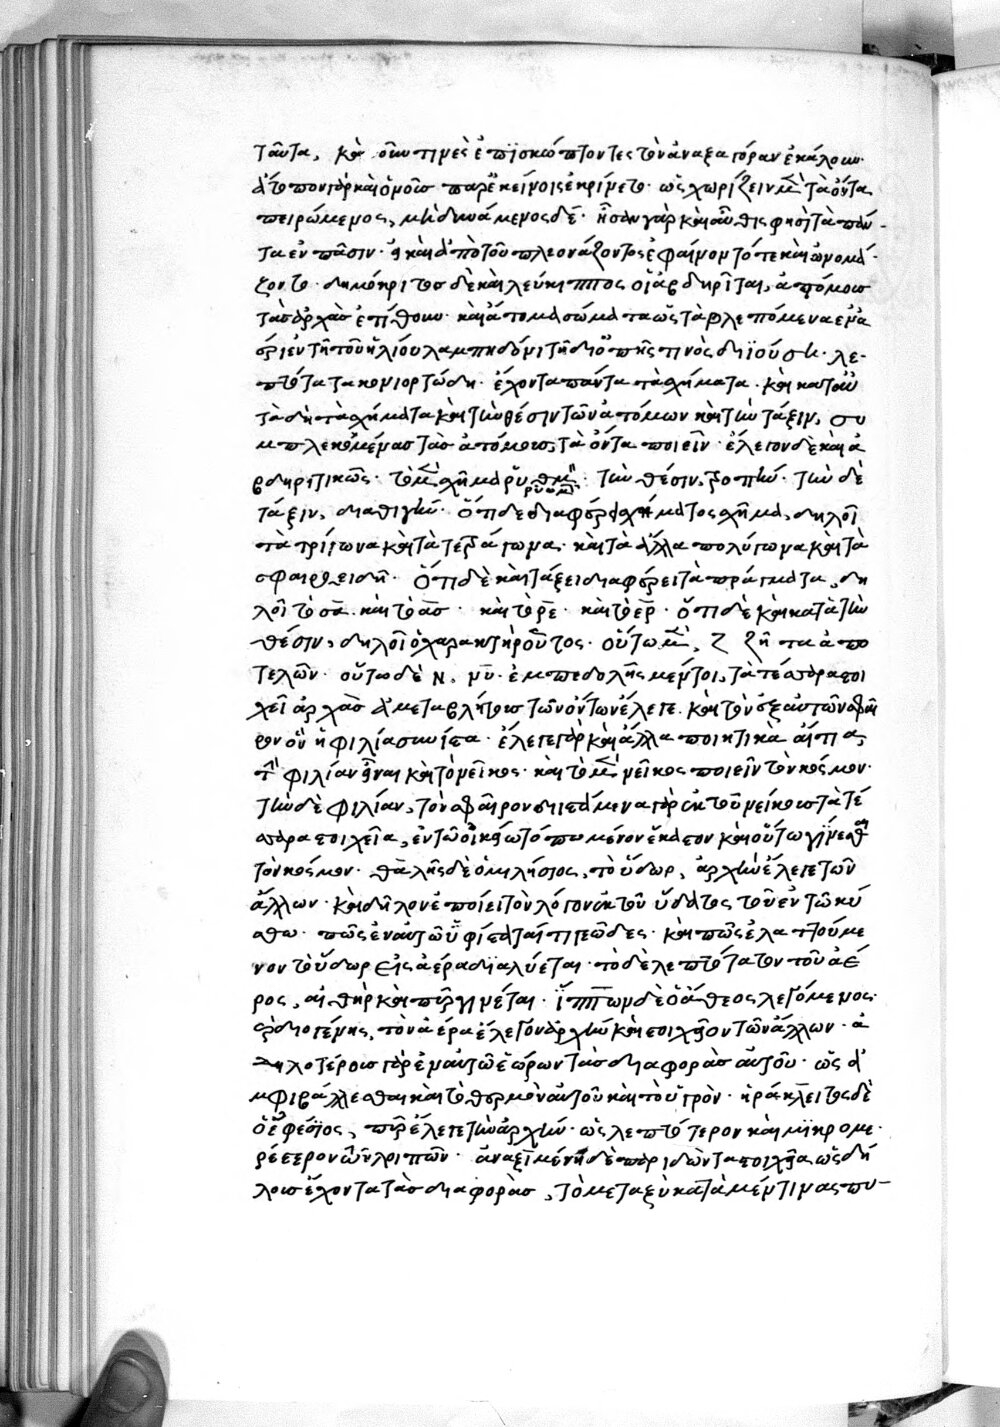 ταῦτα, καὶ νοῦν τινὲς ἐπισκώπτοντες τὸν ἀναξαγόραν ἐκάλουν·
ἄτοπον γὰρ καὶ ὁμοῖς παρ' ἐκείνοις ἐκρίνετο· ὡς χωρίζειν μὲν τὰ ὄντα
πειρώμενος, μὴ δυνάμενος δέ· ἦσαν γὰρ καὶ αὖθις φησὶ τὰ πάν-
τα ἐν πᾶσιν· καὶ ἀπὸ τοῦ πλεονάζοντος ἐφαίνοντό τε καὶ ὠνομά-
ζοντο· δημόκριτος δὲ καὶ λεύκιππος οἱ ἀβδηρῖται, ἀτόμους
τὰς ἀρχὰς ἐτίθουν· καὶ ἄτομα σώματα ὡς τὰ βλεπόμενα
ἐν τῇ τοῦ ἡλίου λαμπηδόνι τῇ δι' ὀπῆς τινὸς διϊούσῃ· λε-
πτότατα κονιορτώδη· ἔχοντα πάντα σχήματα· καὶ κατ' αὐ
τὰ δὴ τὰ σχήματα καὶ τὴν θέσιν τῶν ἀτόμων καὶ τὴν τάξιν, συ
μπλεκομένας τὰς ἀτόμους, τὰ ὄντα ποιεῖν· ἔλεγον δὲ καὶ ἀ
βδηριτικῶς· τὸ μὲν σχῆμα ῥυθμὸν· τὴν θέσιν, τροπήν· τὴν δὲ
τάξιν, διαθιγήν· ὅτι δὲ διαφέρει σχήματος σχῆμα, δηλοῖ
τὰ τρίγωνα καὶ τὰ τετράγωνα· καὶ τὰ ἄλλα πολύγωνα καὶ τὰ
σφαιροειδῆ· ὅτι δὲ καὶ τάξει διαφέρει τὰ πράγματα, δη
λοῖ τὸ σα καὶ τὸ ας· καὶ τὸ ρε· καὶ τὸ ερ· ὅτι δὲ καὶ κατὰ τὴν
θέσιν, δηλοῖ ὁ χαρακτὴρ οὗτος· οὕτω μὲν, Ζ ζῆτα ἀπο
τελῶν· οὕτω δὲ Ν, νῦ· ἐμπεδοκλῆς μέντοι, τὰ τέσσαρα στοι
χεῖα ἀρχὰς ἀμεταβλήτους τῶν ὄντων ἔλεγε· καὶ τὸν ἐξ αὐτῶν σφαῖ
ρον ὃν ἡ φιλία συνίστα· ἔλεγε γὰρ καὶ ἄλλα ποιητικὰ αἴτια,
τὴν φιλίαν εἶναι καὶ τὸ νεῖκος· καὶ τὸ μὲν νεῖκος ποιεῖν τὸν κόσμον·
τὴν δὲ φιλίαν, τὸν σφαῖρον διιστάμενα γὰρ ἐκ τοῦ νείκους τὰ τέ
σσαρα στοιχεῖα, ἐν τῷ οἰκείῳ τόπῳ μένον ἕκαστον καὶ οὕτω γίνεσθαι
τὸν κόσμον· θαλῆς δὲ ὁ μιλήσιος, τὸ ὕδωρ, ἀρχὴν ἔλεγε τῶν
ἄλλων· καὶ δῆλον ἐποίει τὸν λόγον ἐκ τοῦ ὕδατος τοῦ ἐν τῷ κύ
αθω· πῶς ἐν αὐτῷ ὑφίσταταί τι γεῶδες· καὶ πῶς ἐλαττούμε
νον τὸ ὕδωρ εἰς ἀέρα διαλύεται· τὸ δὲ λεπτότατον τοῦ ἀέ
ρος, αἰθὴρ καὶ πῦρ γίνεται· ἵππων δὲ ὁ ἄθεος λεγόμενος·
διογένης, τὸν ἀέρα ἔλεγον ἀρχὴν καὶ στοιχεῖον τῶν ἄλλων· ἀ
δηλοτέρους γὰρ ἐν αὐτῷ ἑώρων τὰς διαφορὰς αὐτοῦ· ὡς ἀ
μφιβάλλεσθαι καὶ τὸ θερμὸν αὐτοῦ καὶ τὸ ὑγρόν· ἡράκλειτος δὲ
ὁ ἐφέσιος, πῦρ ἔλεγε τὴν ἀρχήν· ὡς λεπτότερον καὶ μικρομε-
ρέστερον ὂν τῶν λοιπῶν· ἀναξιμένης δὲ περιιδὼν τὰ στοιχεῖα ὡς δή
λους ἔχοντα τὰς διαφορὰς, τὸ μεταξὺ κατὰ μέν τινας πυ-